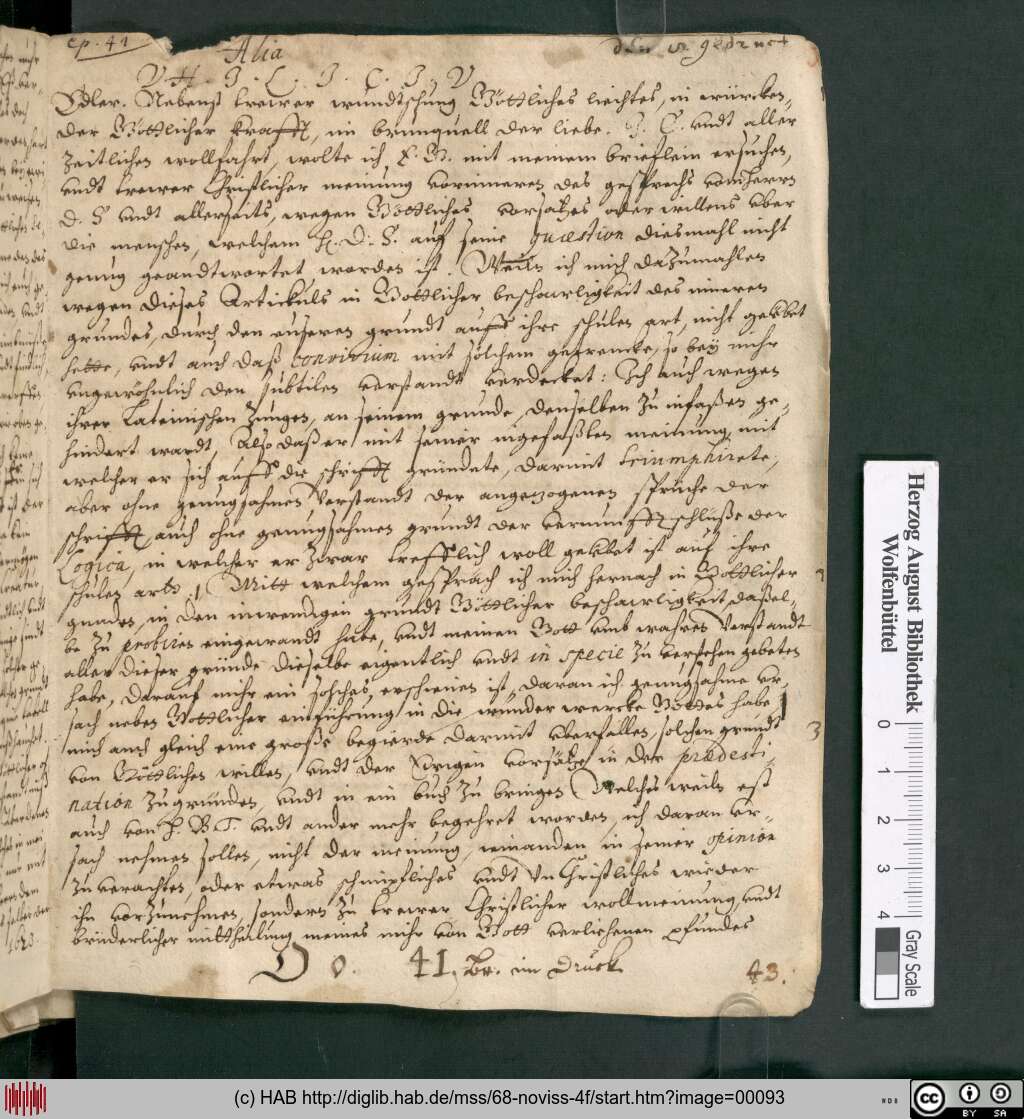 ep. 41
Alia
den 12 gedruckt
V. H. J. L. J. C. J. V
Edler. Nebenst trewer wundtschung Göttliches liechtes, in würcken-
der Göttlicher krafft, im brunquell der liebe. J. C. undt aller
zeitlichen wollfahrt, wolte ich E. G. mit meinem brieflein ersuchen,
undt trewer Christlicher meinung vorinneren des gesprechs vom Herrn
D. S. undt allerseits, wegen Göttliches vorsatzes oder willens uber
die menschen, welchem H. D. S. auf seine quæstion diesmahl nicht
genug geandtwortet worden ist. Weiln ich mich dazumahlen
wegen dieses Artickuls in Göttlicher beschawligkeit des inneren
grundes, durch den euseren grundt auff ihre schulen art, nicht geübet
hette, undt auch daß convivium mit solchem getrencke, so bey mihr
ungewöhnlich den subtilen verstandt verdecket: Ich auch wegen
ihrer Lateinischen Zungen, an seinem grunde, denselben zu infaßen ge-
hindert wardt, Also daß er mit seiner ingefaßten meinung, mit
welcher er sich auff die schrifft gründete, darmit triumphirete,
aber ohne genugsahmen Verstandt der angezogenen sprüche der
schrifft, auch ohne genugsahmen grundt der vernunfft schlüße der
Logica, in welcher er zwar trefflich woll geübet ist auf ihre
schulen arth. Mitt welchem gesprech ich mich hernach in Göttlicher
gnaden, in den inwendigen grundt Göttlicher beschawligkeit, daßel-
be zu probiren eingewandt habe, undt meinen Gott umb wahren Verstandt
aller dieser gründe dieselbe eigentlich undt in specie zu verstehen gebeten
habe, darauf mihr ein solches erschienen ist, daran ich genugsahme ur-
sach neben Göttlicher einführung in die wunder wercke Gottes habe
mich auch gleich eine große begierde darmit uberfallen, solchen grundt
3
von Göttlichen willen, undt der Ewigen vorsätze in der prædesti-
nation zu gründen, undt in ein buch zu bringen. Welches weiln eß
auch von H. B. T. undt ander mehr begehret worden, ich daran ur-
sach nehmen sollen, nicht der meinung, iemanden in seiner opinion
zu verachten, oder etwas schimpfliches undt UnChristliches wieder
ihn vorzunehmen, sondern zu trewer Christlicher wollmeinung, undt
brüderlicher mittheilung meines mihr von Gott verliehenen pfundes
41. Br. im Druck
43.
Herzog August Bibliothek
Wolfenbüttel
0 1 2 3 4
Gray Scale
(c) HAB http://diglib.hab.de/mss/68-noviss-4f/start.htm?image=00093
cc BY SA